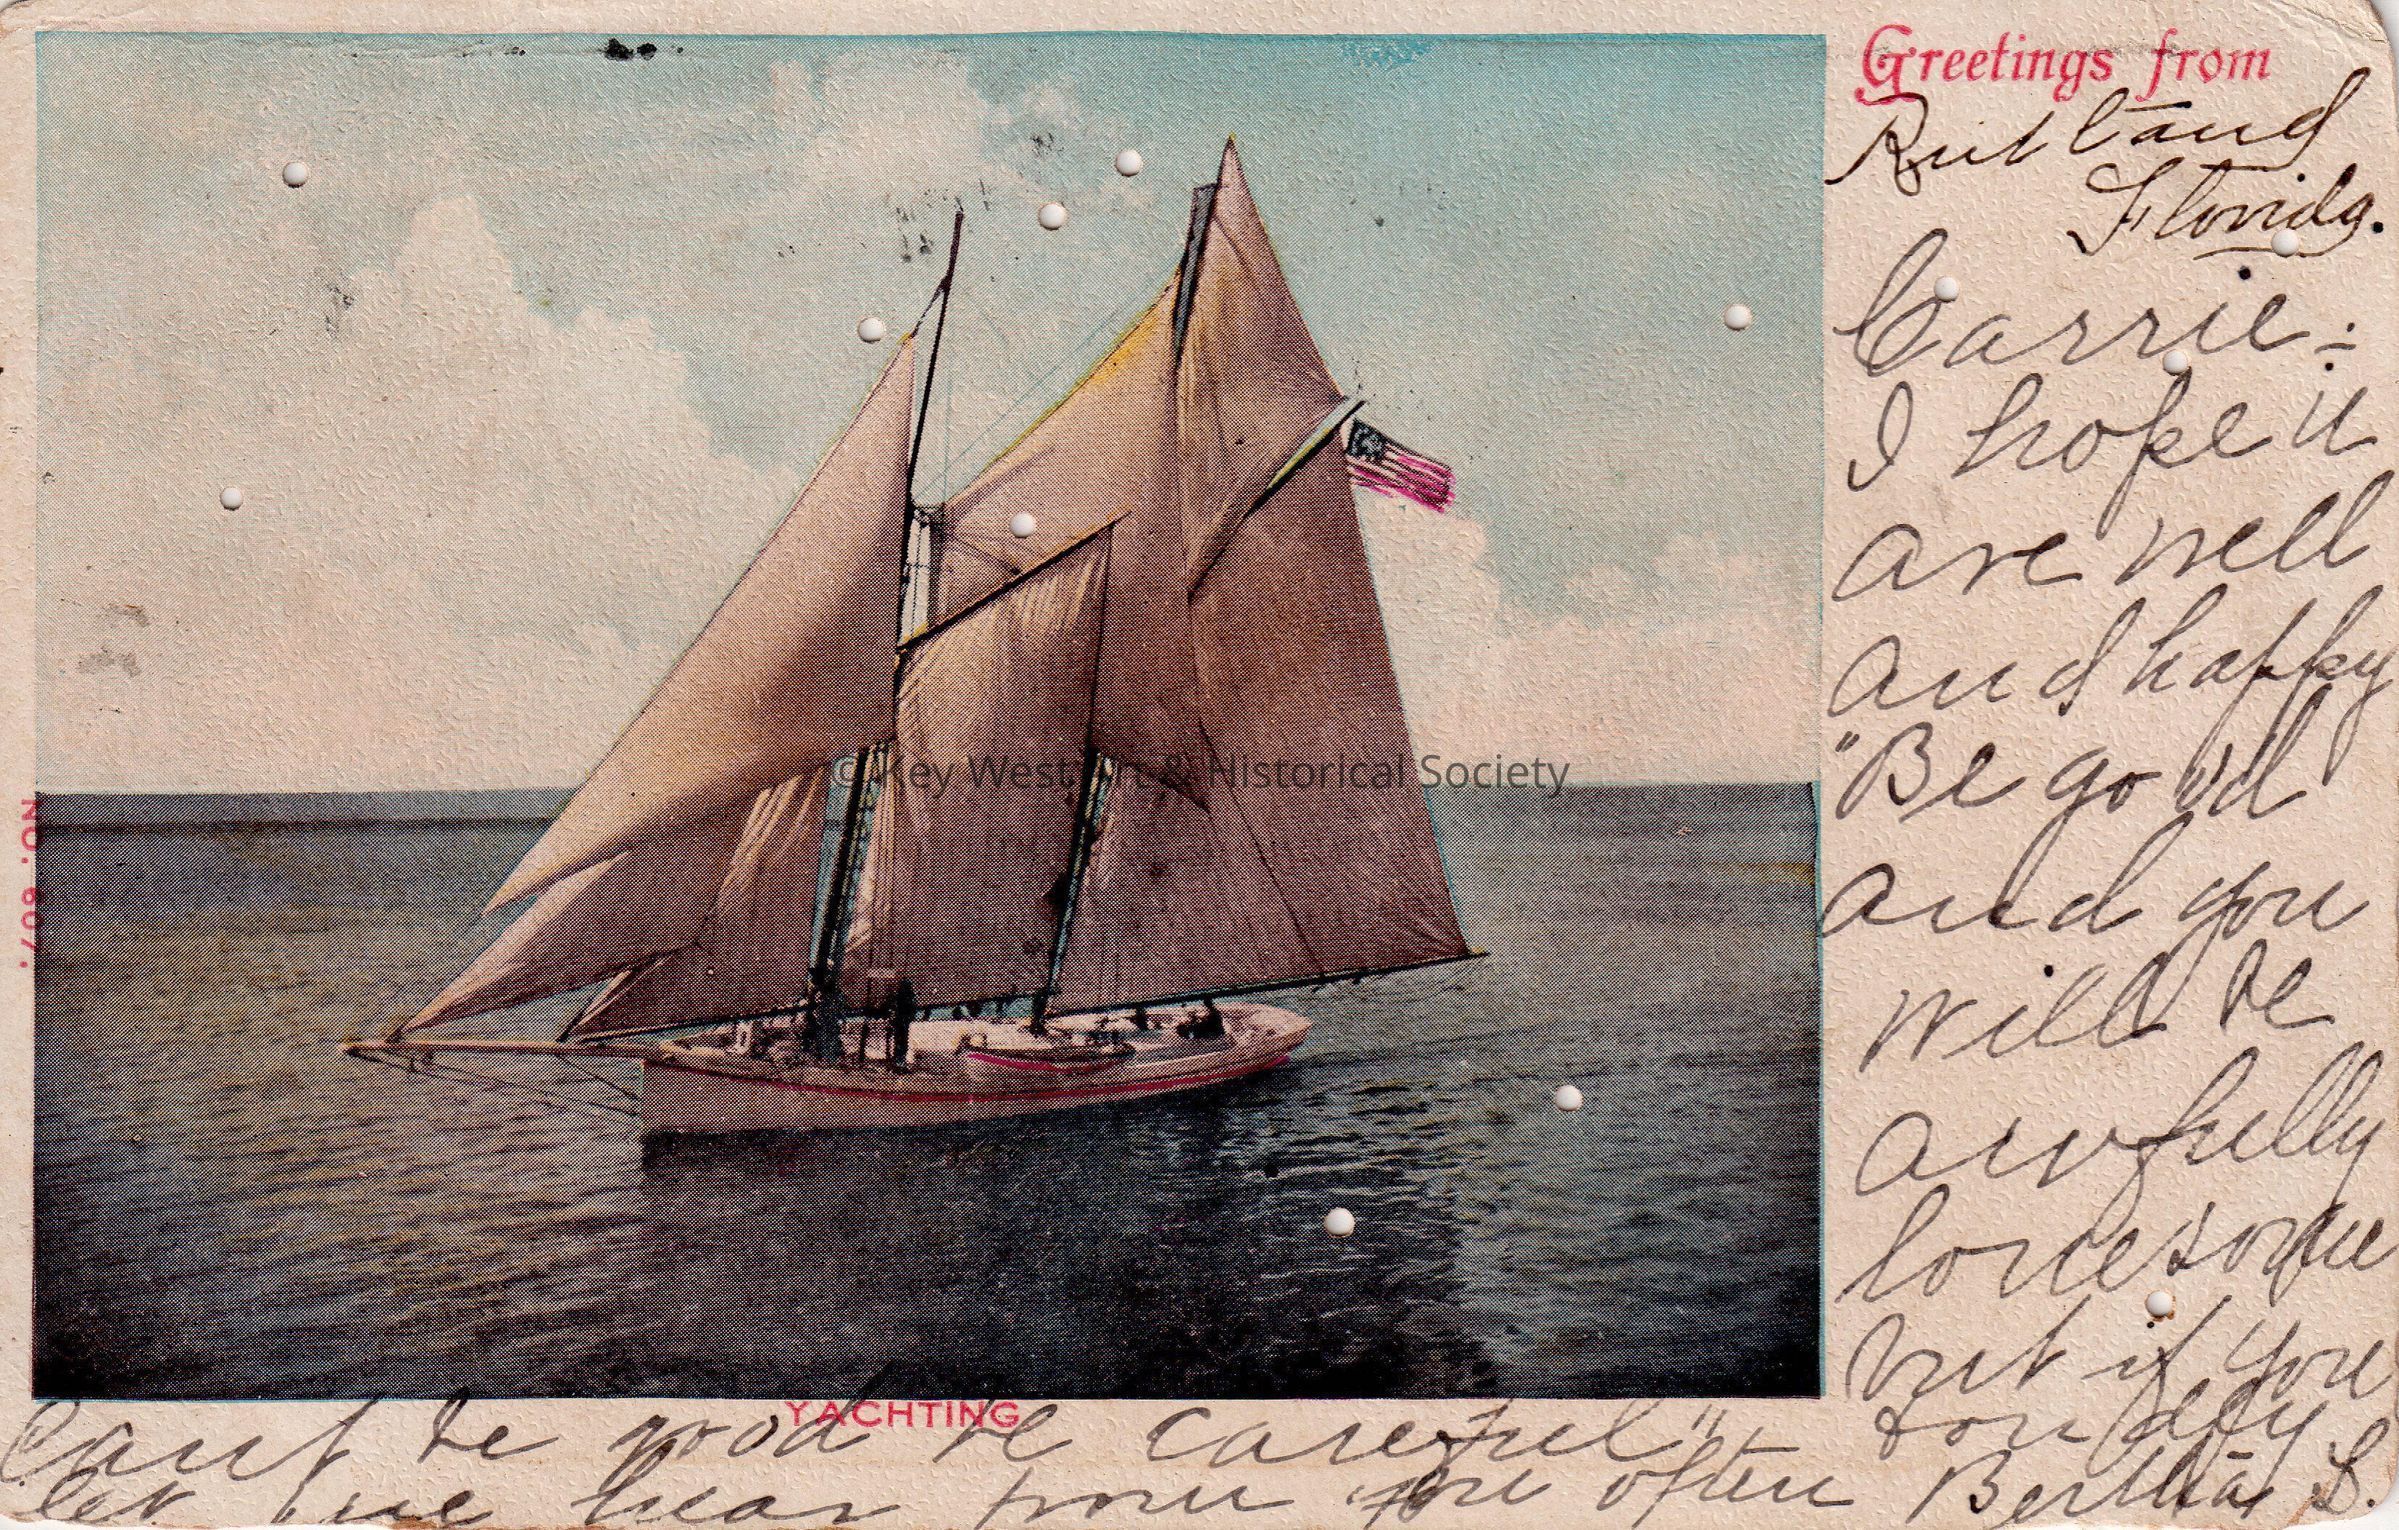 Greetings from
Rutland
Florida.
Carrie:
I hope u
are well
and happy
"Be good
and you
will be
awfully
lonesome
but if you
cant be good be careful",
let me hear from you often
fondly
Bertha L.
YACHTING
NO. 607.
© Key West Art & Historical Society